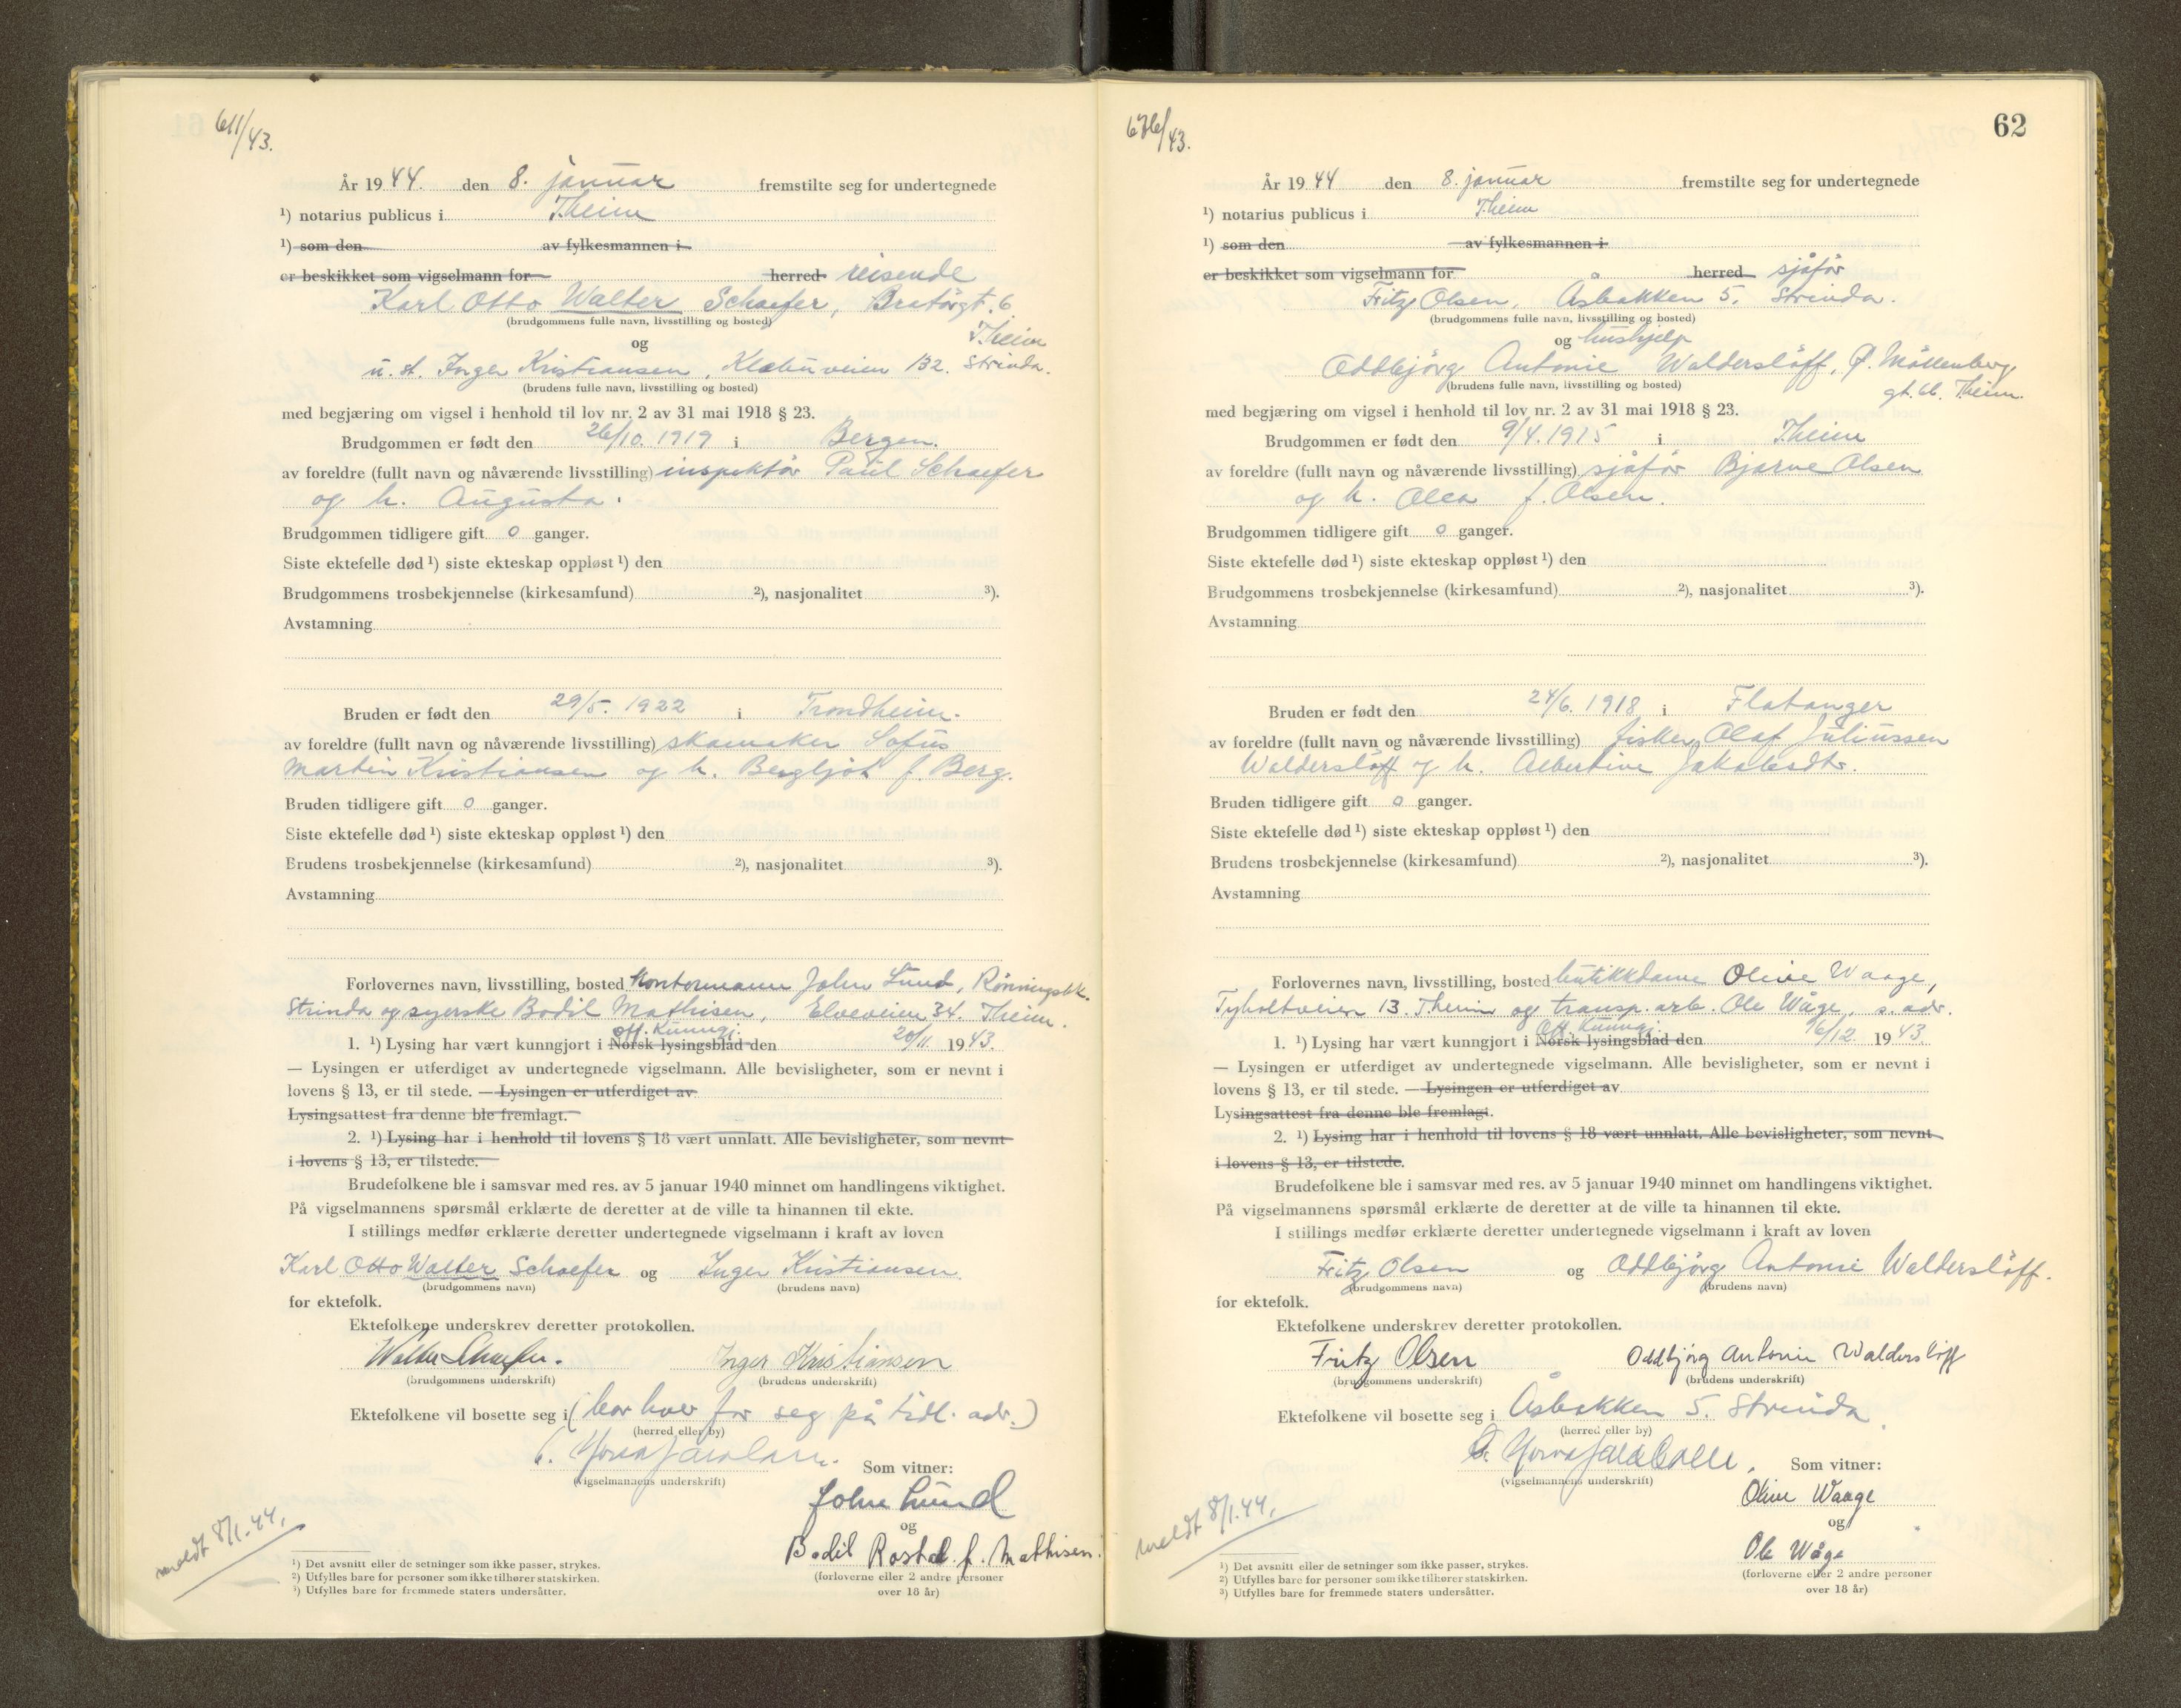 611/43.
År 19 44. den 8. januar fremstilte seg for undertegnede
¹) notarius publicus i Theim
¹) som den av fylkesmannen i
er beskikket som vigselmann for herred reisende
Karl Otto Walter Schaefer, Bratörgt. 6
(brudgommens fulle navn, livsstilling og bosted)
Theim
og
u. st. Inger Kristiansen, Klæbuveien 132. Strinda.
(brudens fulle navn, livsstilling og bosted)
med begjæring om vigsel i henhold til lov nr. 2 av 31 mai 1918 § 23.
Brudgommen er født den 26/10. 1919 i Bergen.
av foreldre (fullt navn og nåværende livsstilling) inspektör Paul Schaefer
og h. Augusta.
Brudgommen tidligere gift 0 ganger.
Siste ektefelle død ¹) siste ekteskap oppløst ¹) den
Brudgommens trosbekjennelse (kirkesamfund) ²), nasjonalitet ³).
Avstamning
Bruden er født den 29/5. 1922 i Trondheim.
av foreldre (fullt navn og nåværende livsstilling) skomaker Sofus
Martin Kristiansen og h. Bergljot f. Berg.
Bruden tidligere gift 0 ganger.
Siste ektefelle død ¹) siste ekteskap oppløst ¹) den
Brudens trosbekjennelse (kirkesamfund) ²), nasjonalitet ³).
Avstamning
Forlovernes navn, livsstilling, bosted Kontormann John Lund, Rönningsbk.
Strinda og syerske Bodil Mathisen, Elveveien 34. Theim.
off. Kunngj.
1. ¹) Lysing har vært kunngjort i Norsk lysingsblad den 20/11. 19 43.
— Lysingen er utferdiget av undertegnede vigselmann. Alle bevisligheter, som er nevnt i
lovens § 13, er til stede. — Lysingen er utferdiget av
Lysingsattest fra denne ble fremlagt.
2. ¹) Lysing har i henhold til lovens § 18 vært unnlatt. Alle bevisligheter, som nevnt
i lovens § 13, er tilstede.
Brudefolkene ble i samsvar med res. av 5 januar 1940 minnet om handlingens viktighet.
På vigselmannens spørsmål erklærte de deretter at de ville ta hinannen til ekte.
I stillings medfør erklærte deretter undertegnede vigselmann i kraft av loven
Karl Otto Walter Schaefer og Inger Kristiansen.
(brudgommens navn) (brudens navn)
for ektefolk.
Ektefolkene underskrev deretter protokollen.
Walter Schaefer. Inger Kristiansen
(brudgommens underskrift) (brudens underskrift)
Ektefolkene vil bosette seg i (bor hver for seg på tidl. adr.)
(herred eller by)
Som vitner:
(vigselmannens underskrift)
John Lund
og
Bodil Rostad f. Mathisen.
(forloverne eller 2 andre personer
over 18 år)
meldt 8/1.44.
¹) Det avsnitt eller de setninger som ikke passer, strykes.
²) Utfylles bare for personer som ikke tilhører statskirken.
³) Utfylles bare for fremmede staters undersåtter.
62
/43.
År 19 44 den 8. januar fremstilte seg for undertegnede
¹) notarius publicus i Theim
¹) som den av fylkesmannen i
er beskikket som vigselmann for herred sjåför
Fritz Olsen, Åsbakken 5. Strinda.
(brudgommens fulle navn, livsstilling og bosted)
og hushjelp
Oddbjörg Antonie Waldersløff, Ø. Möllenberg
(brudens fulle navn, livsstilling og bosted)
gt. 66. Theim.
med begjæring om vigsel i henhold til lov nr. 2 av 31 mai 1918 § 23.
Brudgommen er født den 9/4. 1915 i Theim
av foreldre (fullt navn og nåværende livsstilling) sjåför Bjarne Olsen
og h. Olea f. Olsen.
Brudgommen tidligere gift 0 ganger.
Siste ektefelle død ¹) siste ekteskap oppløst ¹) den
Brudgommens trosbekjennelse (kirkesamfund) ²), nasjonalitet ³).
Avstamning
Bruden er født den 24/6. 1918 i Flatanger
av foreldre (fullt navn og nåværende livsstilling) fisker Olaf Juliussen
Waldersløff og h. Albertine Jakobsdtr.
Bruden tidligere gift 0 ganger.
Siste ektefelle død ¹) siste ekteskap oppløst ¹) den
Brudens trosbekjennelse (kirkesamfund) ²), nasjonalitet ³).
Avstamning
Forlovernes navn, livsstilling, bosted butikkdame Olive Waage,
Tyholtveien 13. Theim og transp. arb. Ole Wåge, s. adr.
Off. Kunngj.
1. ¹) Lysing har vært kunngjort i Norsk lysingsblad den /12. 19 43.
— Lysingen er utferdiget av undertegnede vigselmann. Alle bevisligheter, som er nevnt i
lovens § 13, er til stede. — Lysingen er utferdiget av
Lysingsattest fra denne ble fremlagt.
2. ¹) Lysing har i henhold til lovens § 18 vært unnlatt. Alle bevisligheter, som nevnt
i lovens § 13, er tilstede.
Brudefolkene ble i samsvar med res. av 5 januar 1940 minnet om handlingens viktighet.
På vigselmannens spørsmål erklærte de deretter at de ville ta hinannen til ekte.
I stillings medfør erklærte deretter undertegnede vigselmann i kraft av loven
Fritz Olsen og Oddbjörg Antonie Waldersløff.
(brudgommens navn) (brudens navn)
for ektefolk.
Ektefolkene underskrev deretter protokollen.
Fritz Olsen Oddbjørg Antonie Waldersløff
(brudgommens underskrift) (brudens underskrift)
Ektefolkene vil bosette seg i Åsbakken 5. Strinda
(herred eller by)
Som vitner:
(vigselmannens underskrift)
Olive Waage
og
Ole Wåge
(forloverne eller 2 andre personer
over 18 år)
meldt 8/1.44.
¹) Det avsnitt eller de setninger som ikke passer, strykes.
²) Utfylles bare for personer som ikke tilhører statskirken.
³) Utfylles bare for fremmede staters undersåtter.